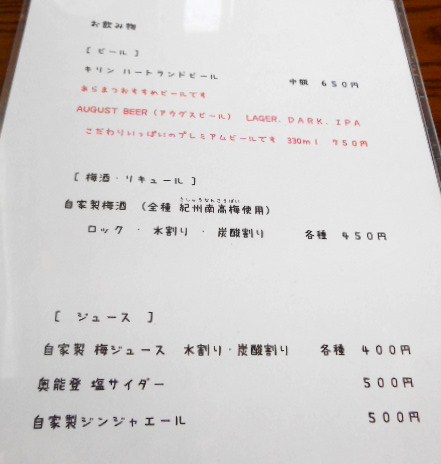 お飲み物
[ ビール ]
キリン ハートランドビール 中瓶 650円
あらまつおすすめビールです
AUGUST BEER (アウグスビール) LAGER. DARK. IPA
こだわりいっぱいのプレミアムビールです 330ml 750円
[ 梅酒・リキュール ]
きしゅうなんこうばい
自家製梅酒 (全種 紀州南高梅使用)
ロック ・ 水割り ・ 炭酸割り 各種 450円
[ ジュース ]
自家製 梅ジュース 水割り・炭酸割り 各種 400円
奥能登 塩サイダー 500円
自家製ジンジャエール 500円